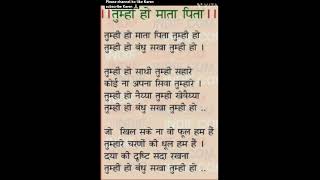 Please channel ko like Karen
subscribe Karen
।।तुम्ही हो माता पिता।।
तुम्ही हो माता पिता तुम्ही हो
तुम्ही हो बंधु सखा तुम्ही हो ।
तुम्ही हो साथी तुम्ही सहारे
कोई ना अपना सिवा तुम्हारे ।
तुम्ही हो नैय्या तुम्ही खेवैय्या
तुम्ही हो बंधु सखा तुम्ही हो ..
जो खिल सके ना वो फूल हम हैं
तुम्हारे चरणों की धूल हम हैं ।
दया की दृष्टि सदा रखना
तुम्ही हो बंधु सखा तुम्ही हो ..